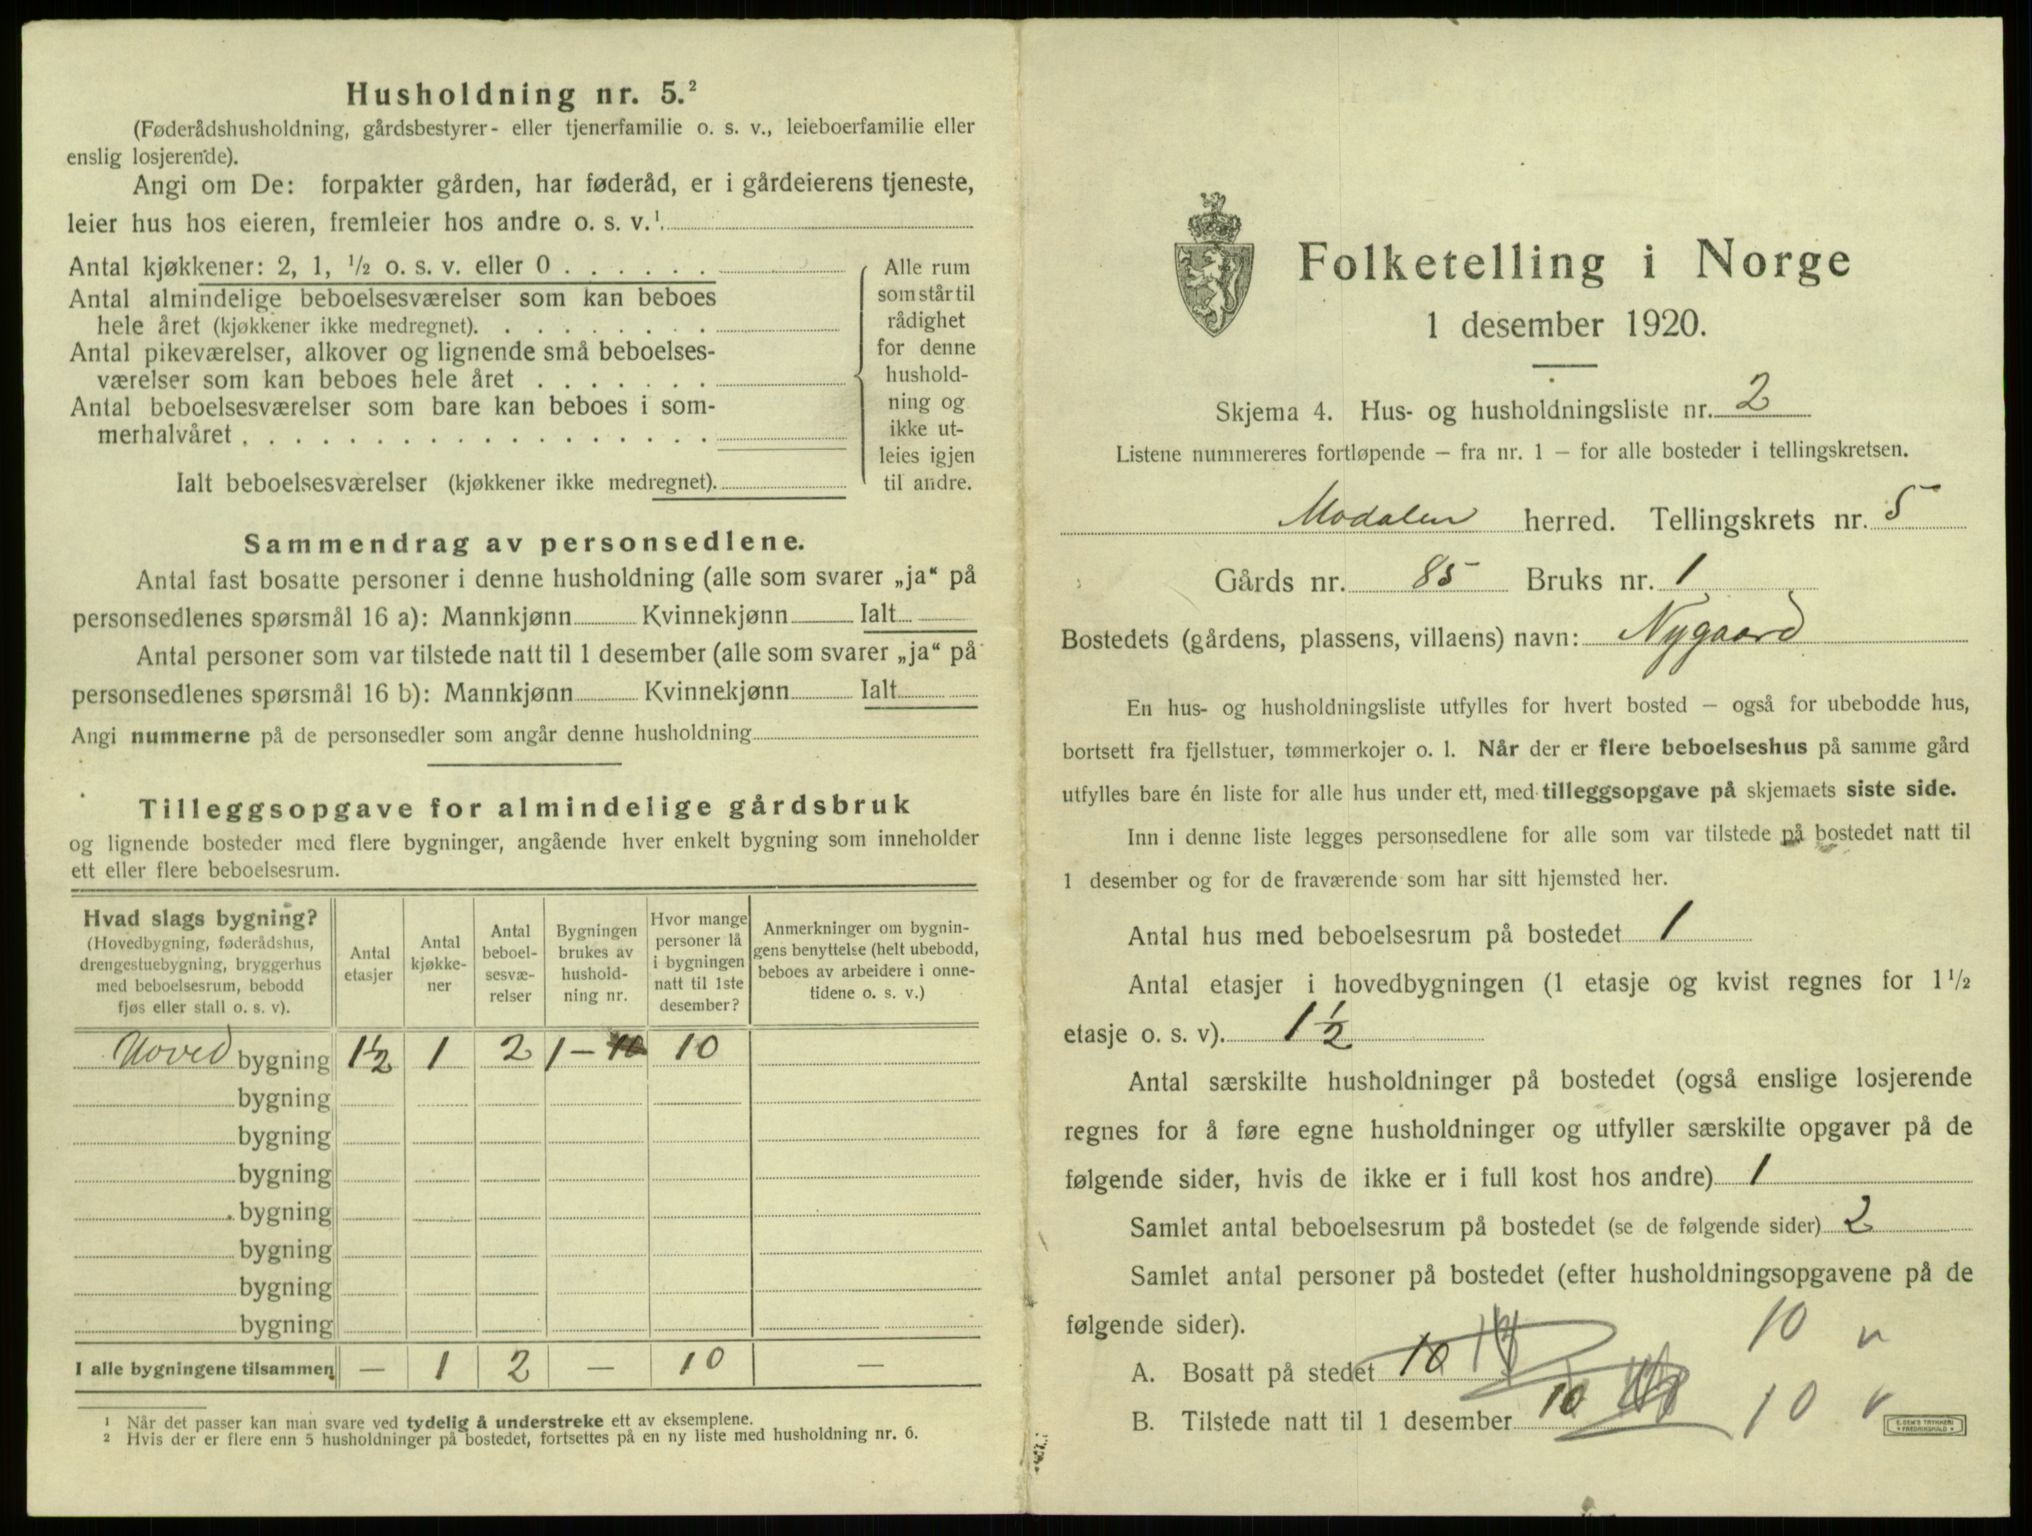 Husholdning nr. 5.²
(Føderådshusholdning, gårdsbestyrer- eller tjenerfamilie o. s. v., leieboerfamilie eller
enslig losjerende).
Angi om De: forpakter gården, har føderåd, er i gårdeierens tjeneste,
leier hus hos eieren, fremleier hos andre o. s. v.¹
Antal kjøkkener: 2, 1, ½ o. s. v. eller 0
Antal almindelige beboelsesværelser som kan beboes
hele året (kjøkkener ikke medregnet).
Antal pikeværelser, alkover og lignende små beboelses-
værelser som kan beboes hele året
Antal beboelsesværelser som bare kan beboes i som-
merhalvåret
Ialt beboelsesværelser (kjøkkener ikke medregnet).
Alle rum
som står til
rådighet
for denne
hushold-
ning og
ikke ut-
leies igjen
til andre.
Sammendrag av personsedlene.
Antal fast bosatte personer i denne husholdning (alle som svarer „ja“ på
personsedlenes spørsmål 16 a): Mannkjønn Kvinnekjønn Ialt
Antal personer som var tilstede natt til 1 desember (alle som svarer „ja“ på
personsedlenes spørsmål 16 b): Mannkjønn Kvinnekjønn Ialt
Angi nummerne på de personsedler som angår denne husholdning
Tilleggsopgave for almindelige gårdsbruk
og lignende bosteder med flere bygninger, angående hver enkelt bygning som inneholder
ett eller flere beboelsesrum.
Hvad slags bygning?
(Hovedbygning, føderådshus,
drengestuebygning, bryggerhus
med beboelsesrum, bebodd
fjøs eller stall o. s. v).
Antal
etasjer
Antal
kjøkke-
ner
Antal
beboel-
sesvæ-
relser
Bygningen
brukes av
hushold-
ning nr.
Hvor mange
personer lå
i bygningen
natt til 1ste
desember?
Anmerkninger om bygnin-
gens benyttelse (helt ubebodd,
beboes av arbeidere i onne-
tidene o. s. v.)
Hoved bygning 1½ 1 2 1 – 10
bygning
bygning
bygning
bygning
bygning
bygning
bygning
I alle bygningene tilsammen — 1 2 — 10 —
¹ Når det passer kan man svare ved tydelig å understreke ett av eksemplene.
² Hvis der er flere enn 5 husholdninger på bostedet, fortsettes på en ny liste med husholdning nr. 6.
Folketelling i Norge
1 desember 1920.
Skjema 4. Hus- og husholdningsliste nr. 2
Listene nummereres fortløpende – fra nr. 1 – for alle bosteder i tellingskretsen.
Modalen herred. Tellingskrets nr. 5
Gårds nr. 85 Bruks nr. 1
Bostedets (gårdens, plassens, villaens) navn: Nygaard
En hus- og husholdningsliste utfylles for hvert bosted – også for ubebodde hus,
bortsett fra fjellstuer, tømmerkojer o. l. Når der er flere beboelseshus på samme gård
utfylles bare én liste for alle hus under ett, med tilleggsopgave på skjemaets siste side.
Inn i denne liste legges personsedlene for alle som var tilstede på bostedet natt til
1 desember og for de fraværende som har sitt hjemsted her.
Antal hus med beboelsesrum på bostedet 1
Antal etasjer i hovedbygningen (1 etasje og kvist regnes for 1½
etasje o. s. v). 1½
Antal særskilte husholdninger på bostedet (også enslige losjerende
regnes for å føre egne husholdninger og utfyller særskilte opgaver på de
følgende sider, hvis de ikke er i full kost hos andre) 1
Samlet antal beboelsesrum på bostedet (se de følgende sider) 2
Samlet antal personer på bostedet (efter husholdningsopgavene på de
følgende sider).
A. Bosatt på stedet 10 10 v
B. Tilstede natt til 1 desember 10 10 v